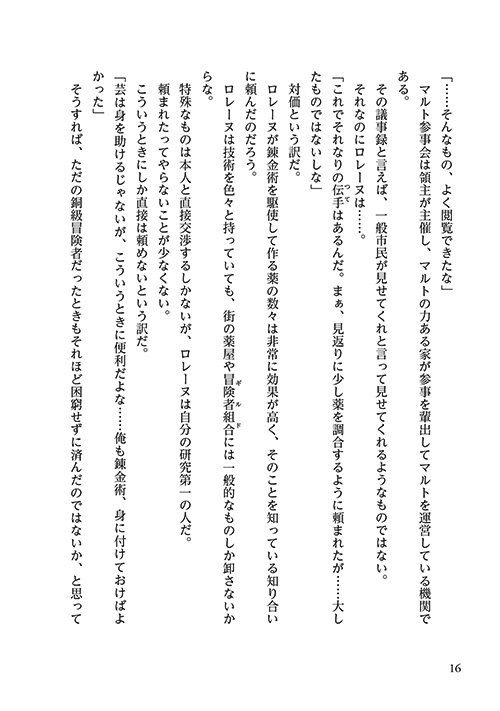 「……そんなもの、よく閲覧できたな」
　マルト参事会は領主が主催し、マルトの力ある家が参事を輩出してマルトを運営している機関で
ある。
　その議事録と言えば、一般市民が見せてくれと言って見せてくれるようなものではない。
　それなのにロレーヌは……。
「これでそれなりの伝手はあるんだ。まぁ、見返りに少し薬を調合するように頼まれたが……大し
たものではないしな」
　対価という訳だ。
　ロレーヌが錬金術を駆使して作る薬の数々は非常に効果が高く、そのことを知っている知り合い
に頼んだのだろう。
　ロレーヌは技術を色々と持っていても、街の薬屋や冒険者組合には一般的なものしか卸さないか
らな。
　特殊なものは本人と直接交渉するしかないが、ロレーヌは自分の研究第一の人だ。
　頼まれたってやらないことが少なくない。
　こういうときにしか直接は頼めないという訳だ。
「芸は身を助けるじゃないが、こういうときに便利だよな……俺も錬金術、身に付けておけばよ
かった」
　そうすれば、ただの銅級冒険者だったときもそれほど困窮せずに済んだのではないか、と思って
つて
ギルド
16